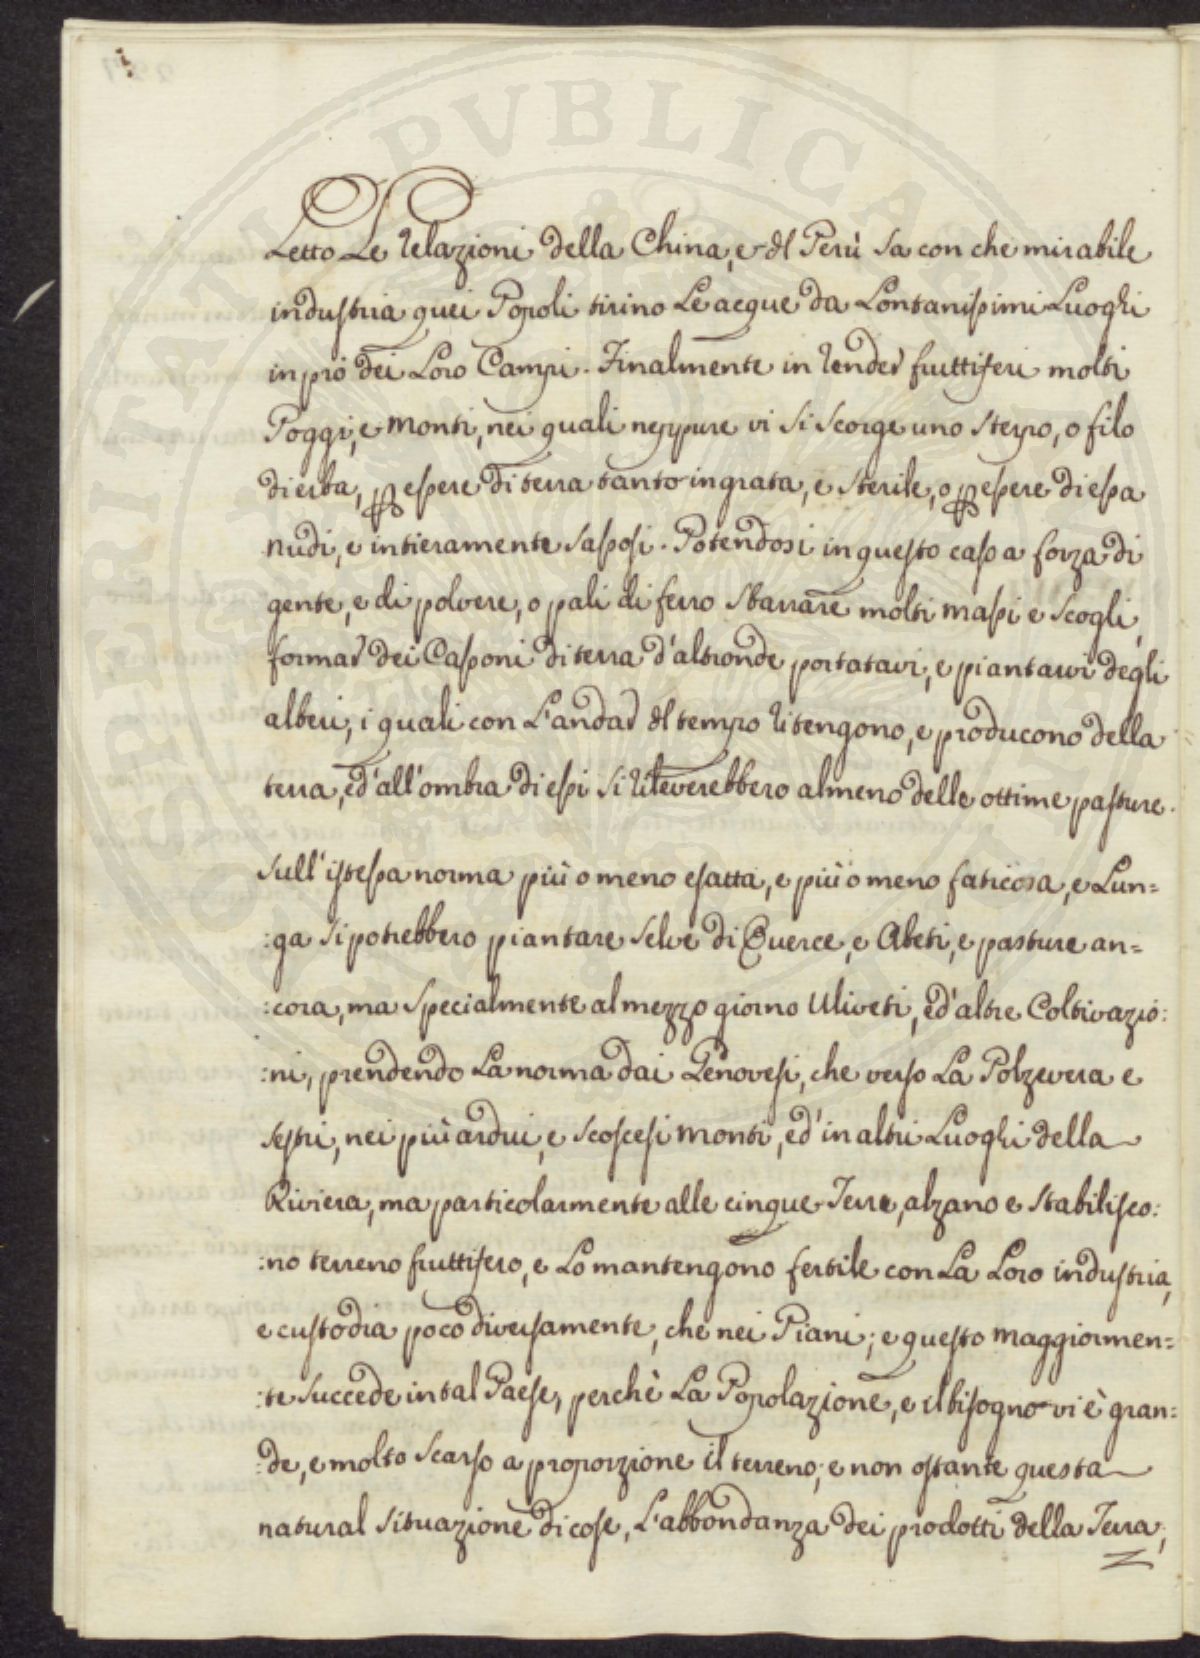 PROSPERITATI PVBLICAE AVGENDAE
Letto Le relazioni della China, e dl Perù sa con che mirabile
industria quei Popoli tirino Le acque da Lontanissimi Luoghi
in pró dei Loro Campi. Finalmente in render fruttiferi molti
Poggi, e monti, nei quali neppure vi si scorge uno sterpo, o filo
di erba, p essere di terra tanto ingrata, e sterile, o p essere di essa
nudi, e intieramente sassosi. Potendosi in questo caso a forza di
gente, e di polvere, o pali di ferro sbarrare molti massi e scogli,
formar dei Cassoni di terra d'altronde portatavi, e piantarvi degli
alberi, i quali con L'andar dl tempo ritengono, e producono della
terra, ed' all'ombra di essi si rileverebbero almeno delle ottime pasture.
Sull'istessa norma più o meno esatta, e più o meno faticosa, e Lun=
:ga si potrebbero piantare selve di Querce, e Abeti, e pasture an=
:cora, ma specialmente al mezzo giorno Uliveti, ed' altre Coltivazio:
:ni, prendendo La norma dai Genovesi, che verso La Polzevera e
Sestri, nei più ardui, e scoscesi monti, ed' in altri Luoghi della
Riviera, ma particolarmente alle cinque Terre, alzano e stabilisco:
:no terreno fruttifero, e Lo mantengono fertile con La Loro industria,
e custodia poco diversamente, che nei Piani; e questo maggiormen=
:te succede in tal Paese, perchè La Popolazione, e il bisogno vi è gran=
:de, e molto scarso a proporzione il terreno; e non ostante questa
natural situazione di cose, L'abbondanza dei prodotti della Terra,